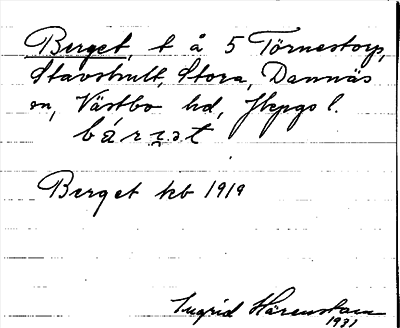 Berget, t å 5 Törnestorp,
Stavshult, Stora, Dannäs
sn, Västbo hd, Jkpgs l.
bárʒət
Berget kb 1919
Ingrid Härenstam
1931